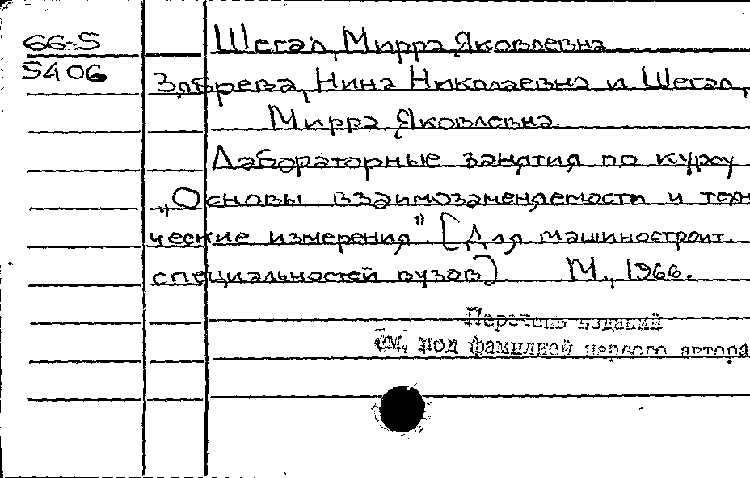 66-5
5406
Шегал, Мирра Яковлевна
Зябрева, Нина Николаевна и Шегал,
Мирра Яковлевна.
Лабораторные занятия по курсу
„Основы взаимозаменяемости и техн
ческие измерения". [Для машиностроит.
специальностей вузов] М., 1966.
Перечень изданий
см. под фамилией первого автора